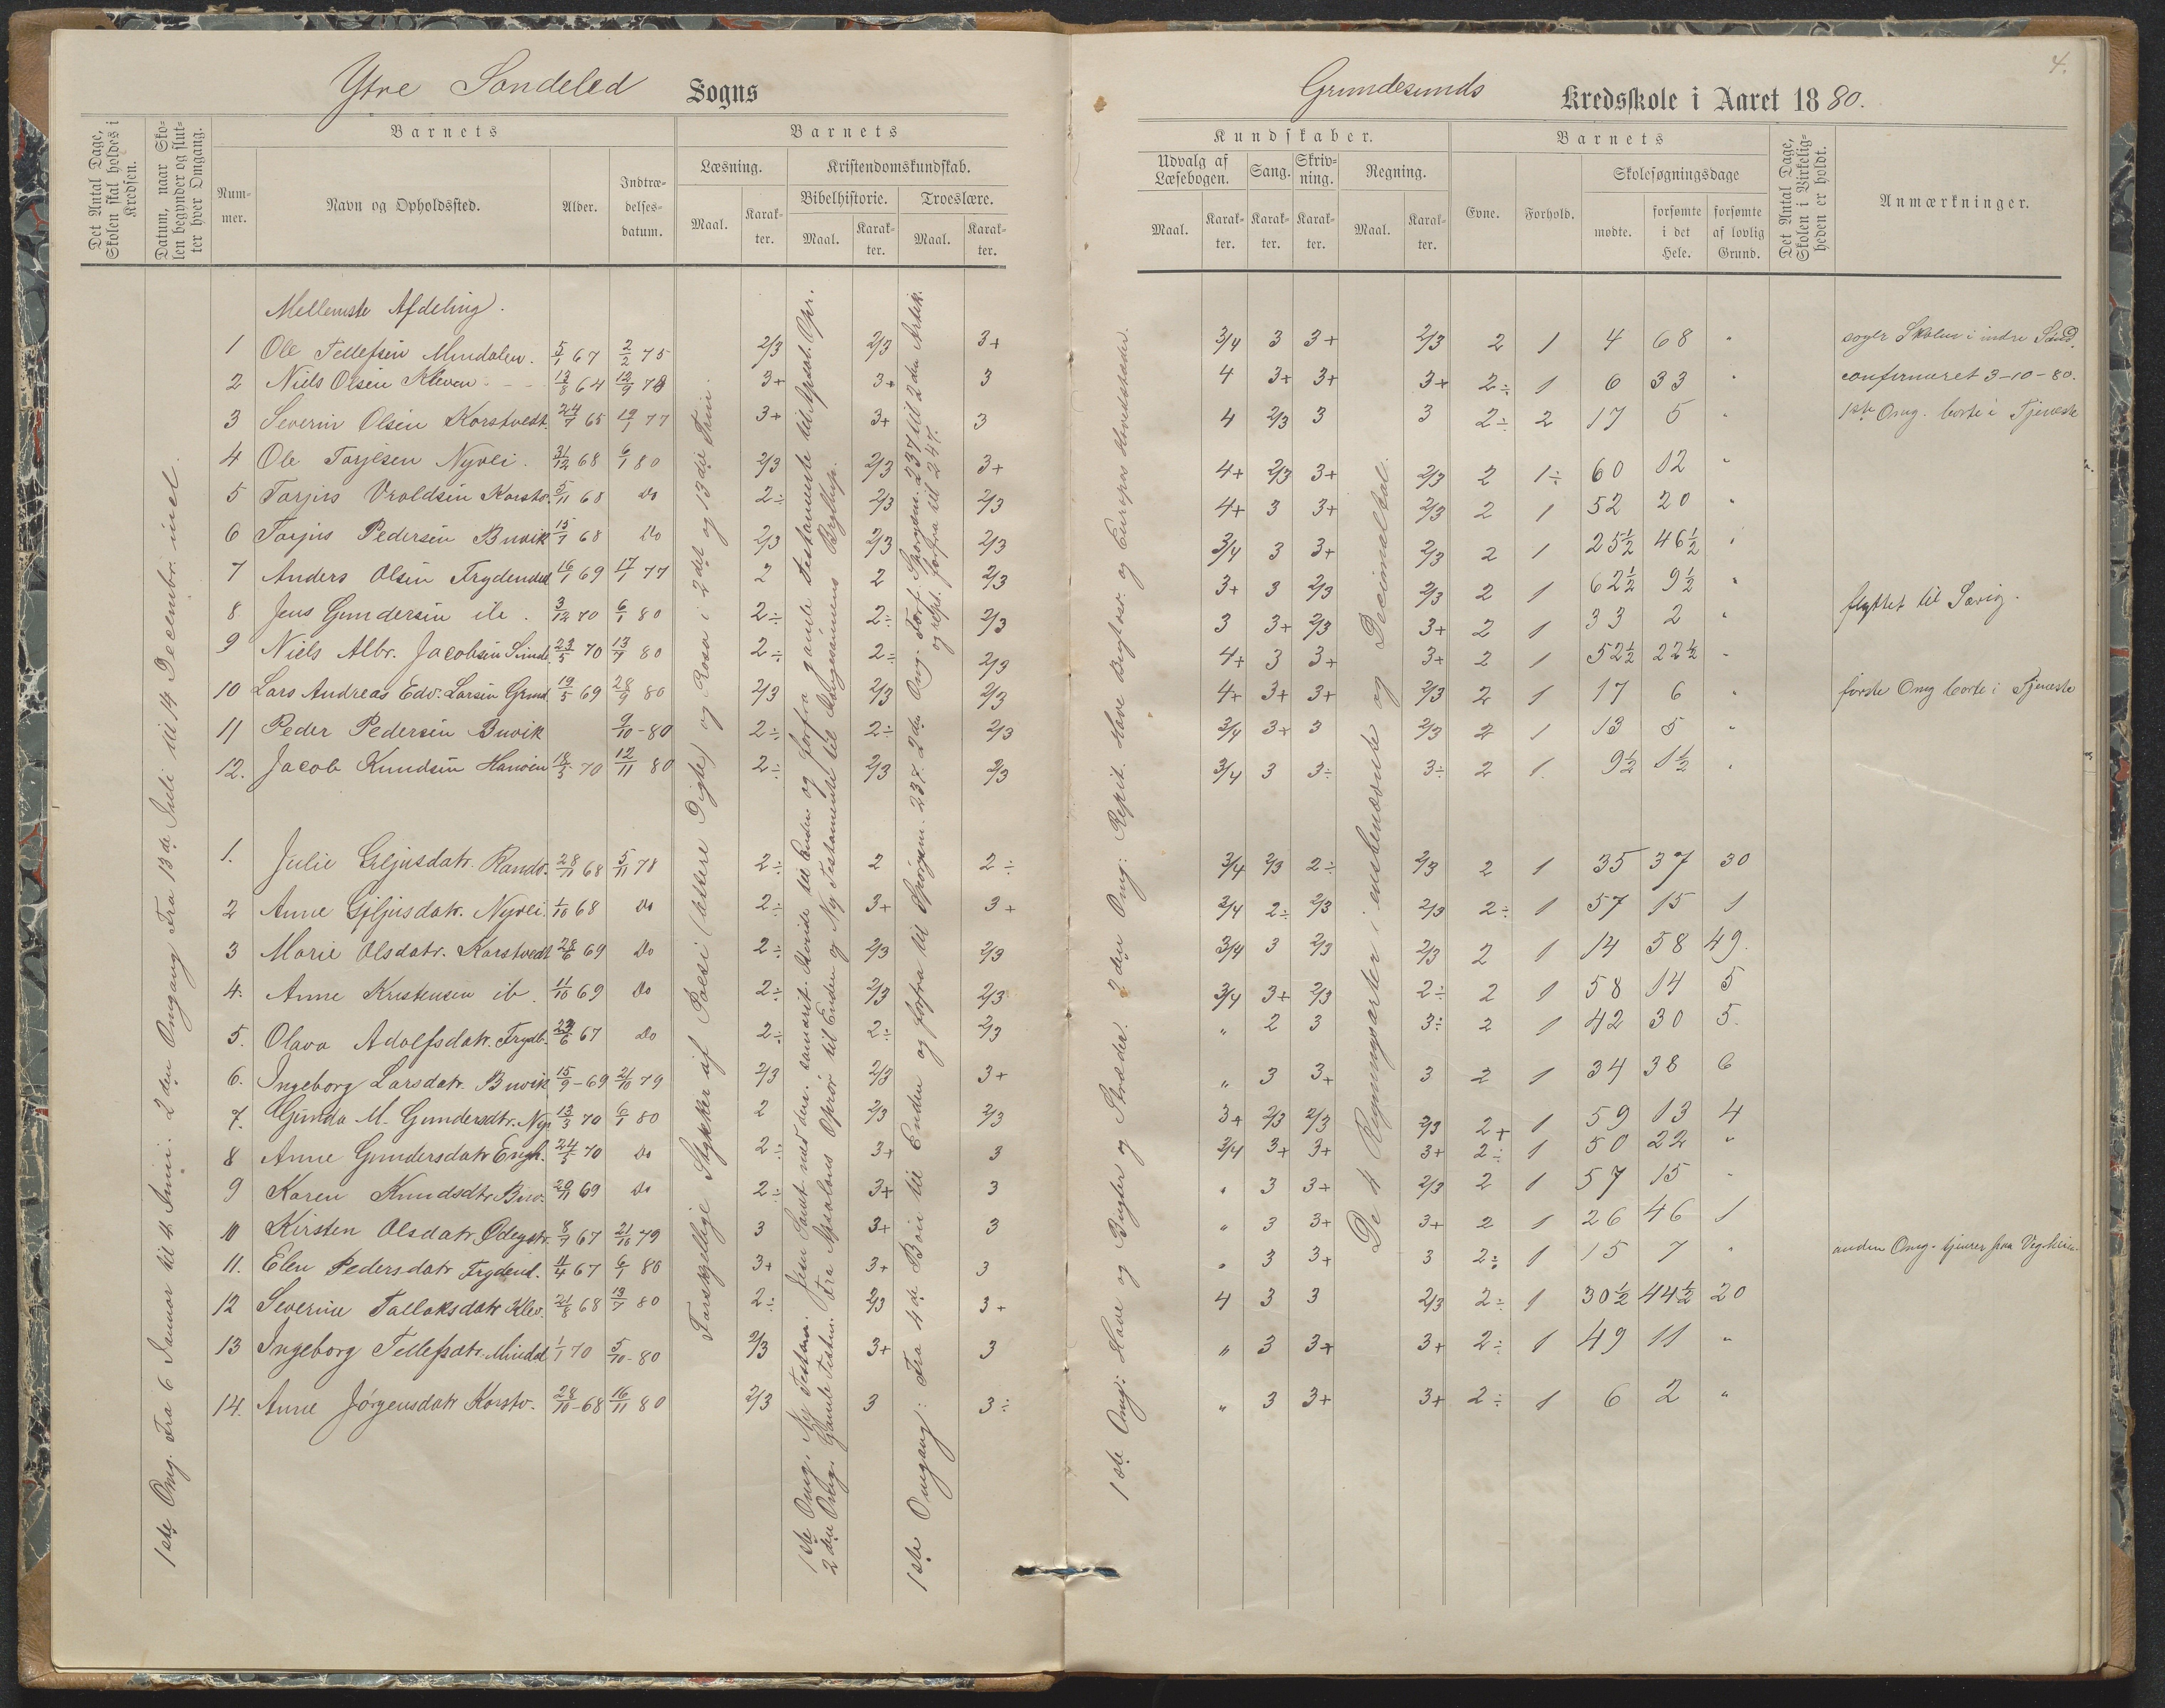 Ytre Søndeled Sogns
Det Antal Dage, Skolen skal holdes i Kredsen.
Datum, naar Skolen begynder og slutter hver Omgang.
Barnets
Nummer.
Navn og Opholdssted.
Alder.
Indtrædelsesdatum.
Barnets
Læsning.
Maal.
Karakter.
Kristendomskundskab.
Bibelhistorie.
Maal.
Karakter.
Troeslære.
Maal.
Karakter.
1ste Omg. Fra 6 Januar til 4 Juni: 2den Omgang Fra 13de Juli til 14 Decembr. incl.
Forskjellige Stykker af Poesi (lettere Digte) og Prosa i 2det og 13die Trin.
Mellemste Afdeling.
1 Ole Tellefsen Mindalen. 5/1 67 2/2 75 2/3 2/3 3+
2 Niels Olsen Kleven 13/8 64 12/9 78 3+ 3+ 3
3 Severin Olsen Korstvedt. 24/7 65 19/1 77 3+ 3+ 3
4 Ole Torjesen Nyvei. 31/12 68 6/1 80 2/3 2/3 3+
5 Torjus Vroldsen Korstv. 5/11 68 Do 2÷ 2/3 2/3
6 Torjus Pedersen Buvik 15/7 68 Do 2/3 2/3 2/3
7 Anders Olsen Frydendal 16/1 69 17/1 77 2 2 2/3
8. Jens Gundersen ib. 3/12 70 6/1 80 2÷ 2÷ 2/3
9 Niels Albr. Jacobsen 23/5 70 13/7 80 2÷ 2÷ 2/3
10 Lars Andreas Edv. Larsen Grund. 19/5 69 28/9 80 2/3 2/3 2/3
11 Peder Pedersen Buvik 9/10-80 2÷ 2÷ 2/3
12. Jacob Knudsen 18/5 70 12/11 80 2÷ 2/3 2/3
1. Julie Randv. 28/11 68 5/11 78 2÷ 2 2÷
2 Anne Giljusdatr. Nyvei. 1/10 68 Do 2÷ 3+ 3+
3 Marie Olsdatr. Korstvedt 28/6 69 Do 2÷ 2/3 2/3
4. Anne Kristensen ib. 11/10 69 Do 2÷ 2/3 2/3
5. Olava Adolfsdatr. Frydl. 23/6 67 Do 2÷ 2÷ 2/3
6. Ingeborg Larsdatr. Buvik 15/9-69 21/10 79 2/3 2/3 3+
7. Gunda M. Gundersdtr. Nyv. 13/3 70 6/1 80 2 2/3 2/3
8 Anne Gundersdatr Engh. 24/5 70 Do 2÷ 3+ 3
9 Karen Knudsdtr Buv. 29/11 69 Do 2÷ 3+ 3
10 Kirsten Olsdatr Ødegstr. 8/7 67 21/10 79 3 3+ 3
11. Elen Pedersdatr Frydend. 11/4 67 6/1 80 3+ 3+ 3
12 Severine Tallaksdatr Klev. 21/8 68 13/7 80 2÷ 2/3 3+
13 Ingeborg Tellefsdtr. Mindal 1/1 70 5/10-80 2/3 3+ 3
14. Anne Jørgensdatr Korstv. 28/10-68 16/11 80 2/3 3 3÷
Grundesunds Kredsskole i Aaret 1880.
4.
Kundskaber.
Udvalg af Læsebogen.
Maal.
Karakter.
Sang.
Karakter.
Skrivning.
Karakter.
Regning.
Maal.
Karakter.
Barnets
Evne.
Forhold.
Skolesøgningsdage
mødte.
forsømte i det Hele.
forsømte af lovlig Grund.
Det Antal Dage, Skolen i Virkeligheden er holdt.
Anmærkninger.
De 4 Regningsarter i eensbenævnte og Decimaltal.
3/4 3 3+ 2/3 2 1 4 68 " søger Skolen i indre Sønd.
4 3+ 3+ 3+ 2÷ 1 6 33 " confirmeret 3-10-80.
4 2/3 3 3 2÷ 2 17 5 " 1ste Omg. borte i Tjeneste
4+ 2/3 3+ 2/3 2 1÷ 60 12 "
4+ 3 3+ 2/3 2 1 52 20 "
3/4 3 3+ 2/3 2 1 25½ 46½ "
3+ 3 2/3 2/3 2 1 62½ 9½ "
3 3+ 2/3 3+ 2 1 33 2 " flyttet til
4+ 3 3+ 3+ 2 1 52½ 22½ "
4+ 3+ 3+ 2/3 2 1 17 6 " første Omg borte i Tjeneste
3/4 3+ 3 2/3 2 1 13 5 "
3/4 3 3÷ 3÷ 2 1. 9½ 1½ "
3/4 2/3 2÷ 2/3 2 1 35 37 30
3/4 2÷ 2/3 2/3 2÷ 1 57 15 1
3/4 3 2/3 2/3 2 1 14 58 49.
3/4 3+ 2/3 2÷ 2 1 58 14 5
" 2 3 3÷ 2 1 42 30 5.
" 3 3+ 3 2 1 34 38 6
3+ 2/3 2/3 2/3 2+ 1 59 13 4
3/4 3+ 3+ 3+ 2÷ 1 50 22 "
" 3 3+ 2/3 2 1 57 15 "
" 3 3+ 3+ 2 1 26 46 1
" 3 3+ 3 2÷ 1 15 7 " anden Omg. tjener paa
4 3 3 2/3 2÷ 1 30½ 44½ 20
" 3 3+ 3+ 2÷ 1 49 11 "
" 3 3+ 3+ 2÷ 1 6 2 "